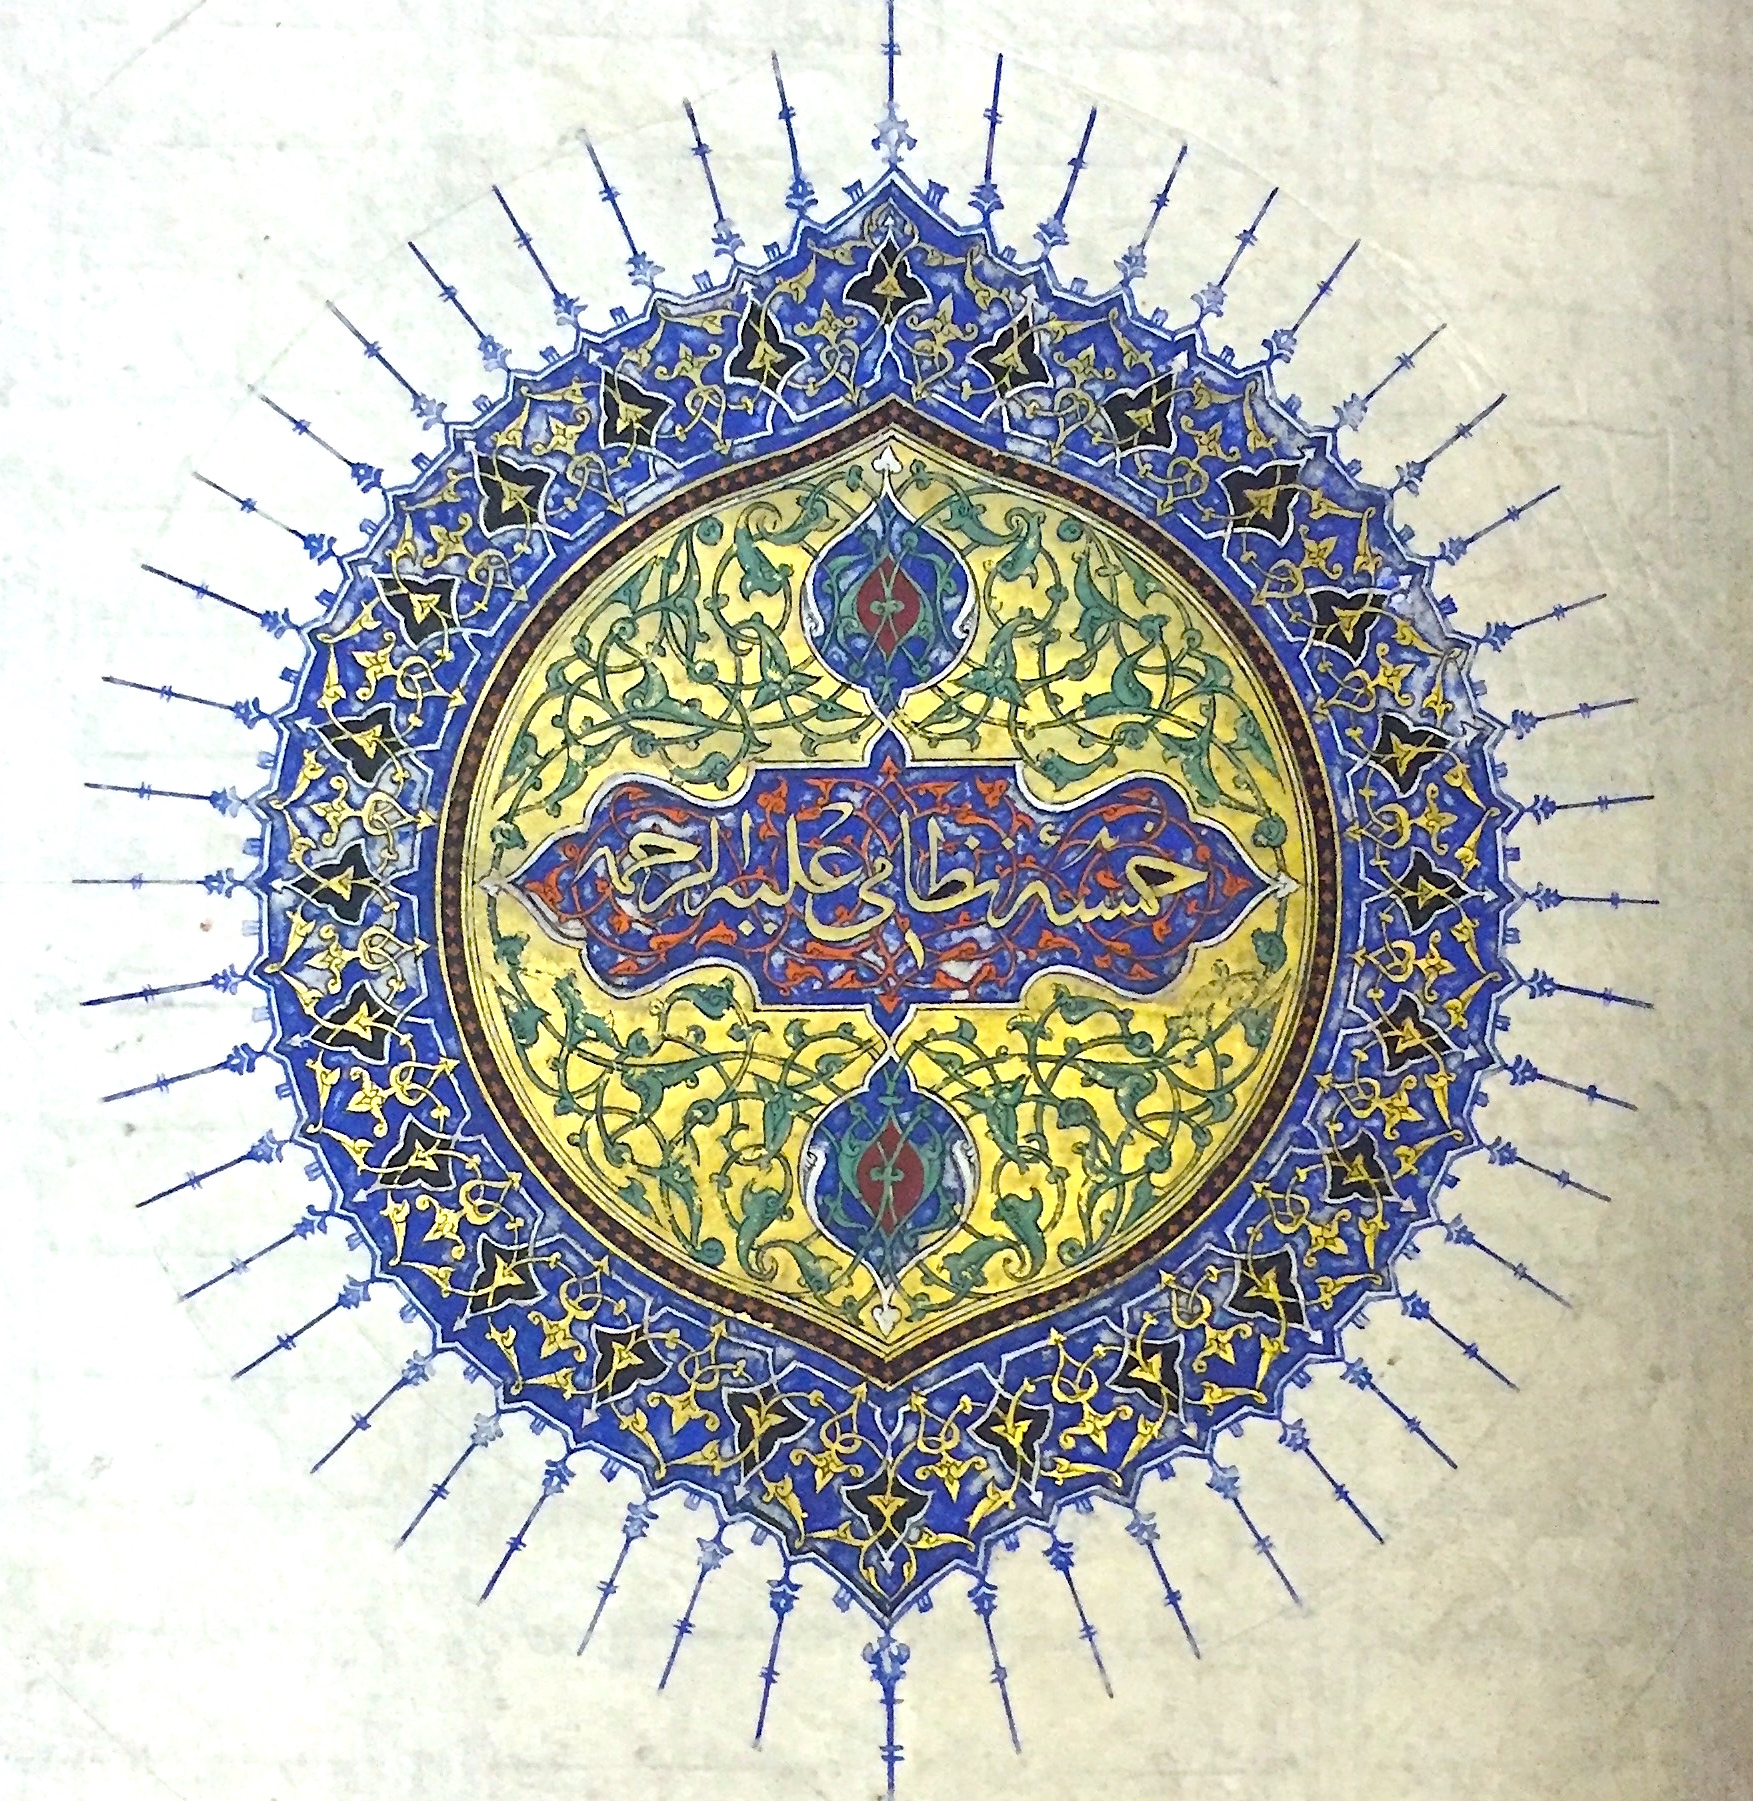 خمسهٔ نظامی علیه الرحمه